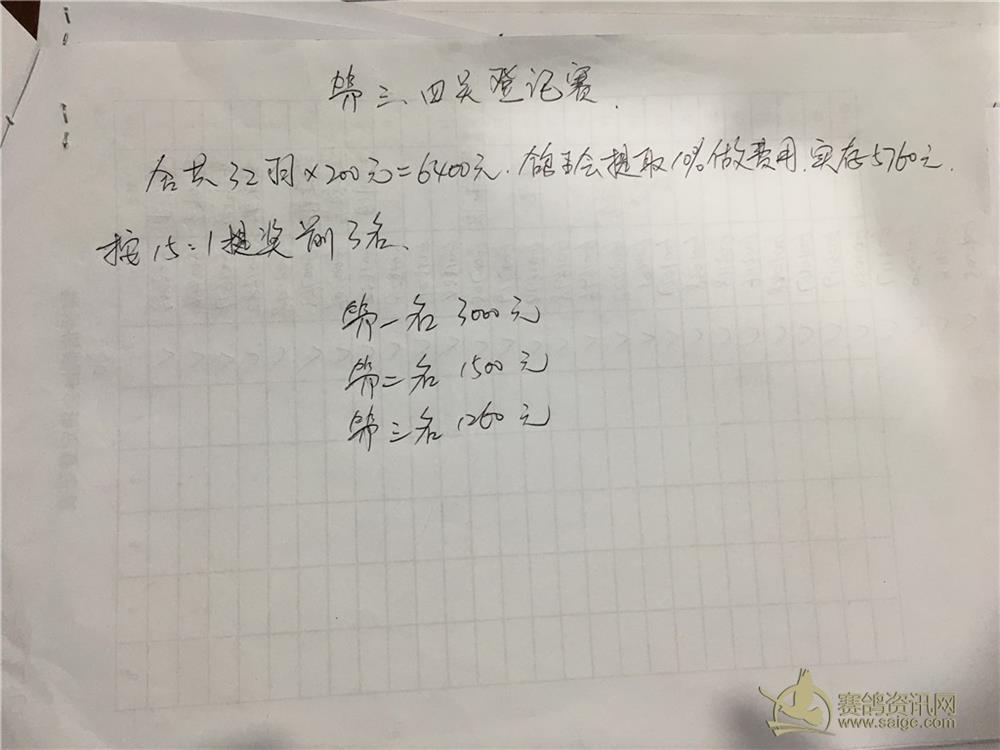 第三、四关登记赛.
合共32羽×200元=6400元.鸽王会提取10%做费用.实存5760元.
按15:1提奖前3名、
第一名 3000元
第二名 1500元
第三名 1260元
赛鸽资讯网
www.saige.com